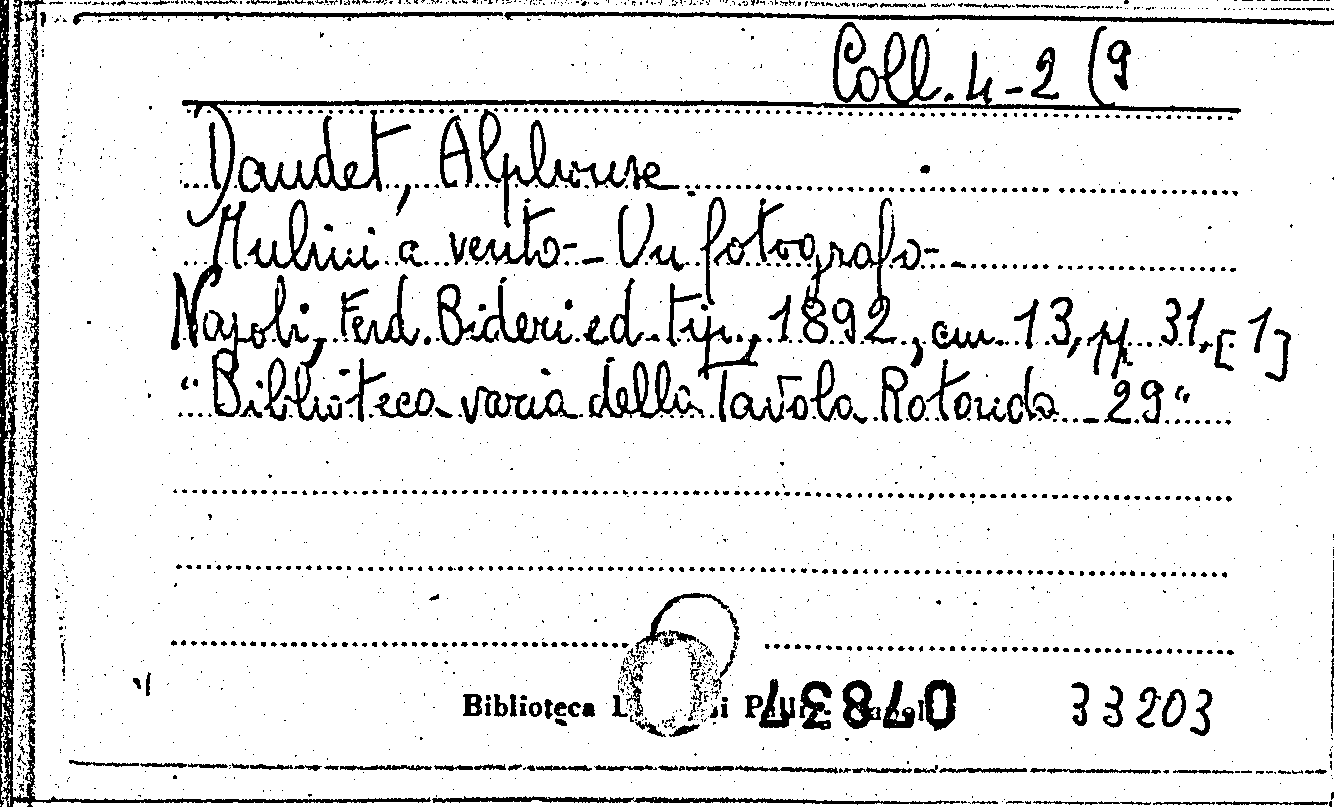 Coll. 4-2 (9
Daudet, Alphonse
Mulini a vento - Un fotografo -
Napoli, Ferd. Bideri ed. tip., 1892, cm. 13, pp. 31, [1]
"Biblioteca varia della Tavola Rotonda - 29"
Biblioteca
33203